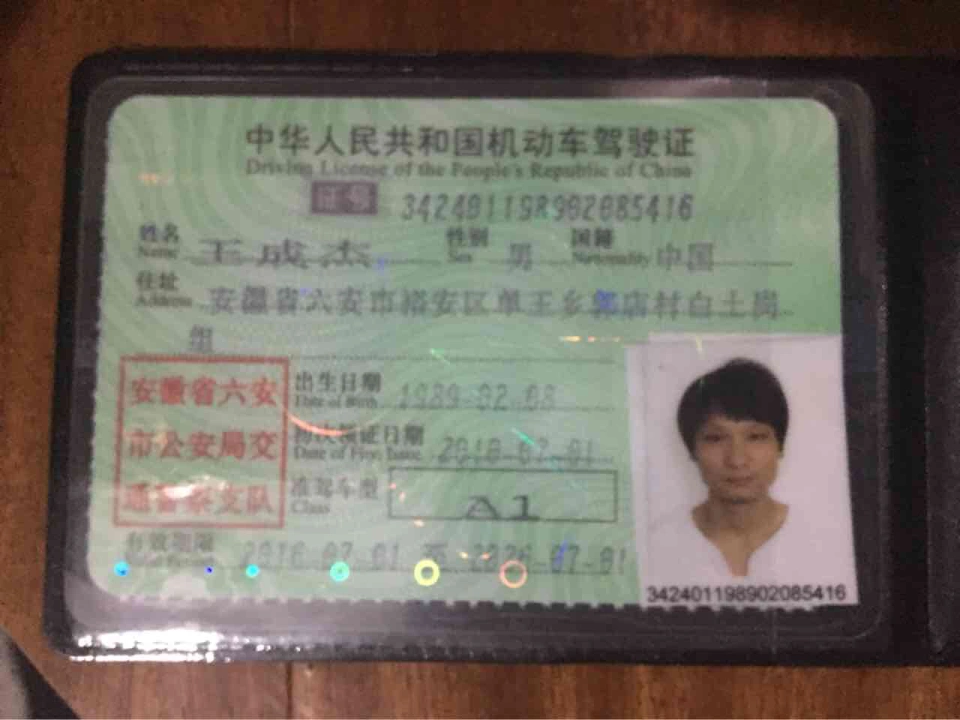 中华人民共和国机动车驾驶证
Driving License of the People's Republic of China
证号 342401198902085416
姓名 王成杰 性别 男 国籍 中国
Name Sex Nationality
住址 安徽省六安市裕安区单王乡郭店村白土岗
Address
组
安徽省六安
市公安局交
通警察支队
出生日期 1989-02-08
Date of Birth
初次领证日期 2010-07-01
Date of First Issue
准驾车型 A1
Class
有效期限 2016-07-01 至 2026-07-01
342401198902085416